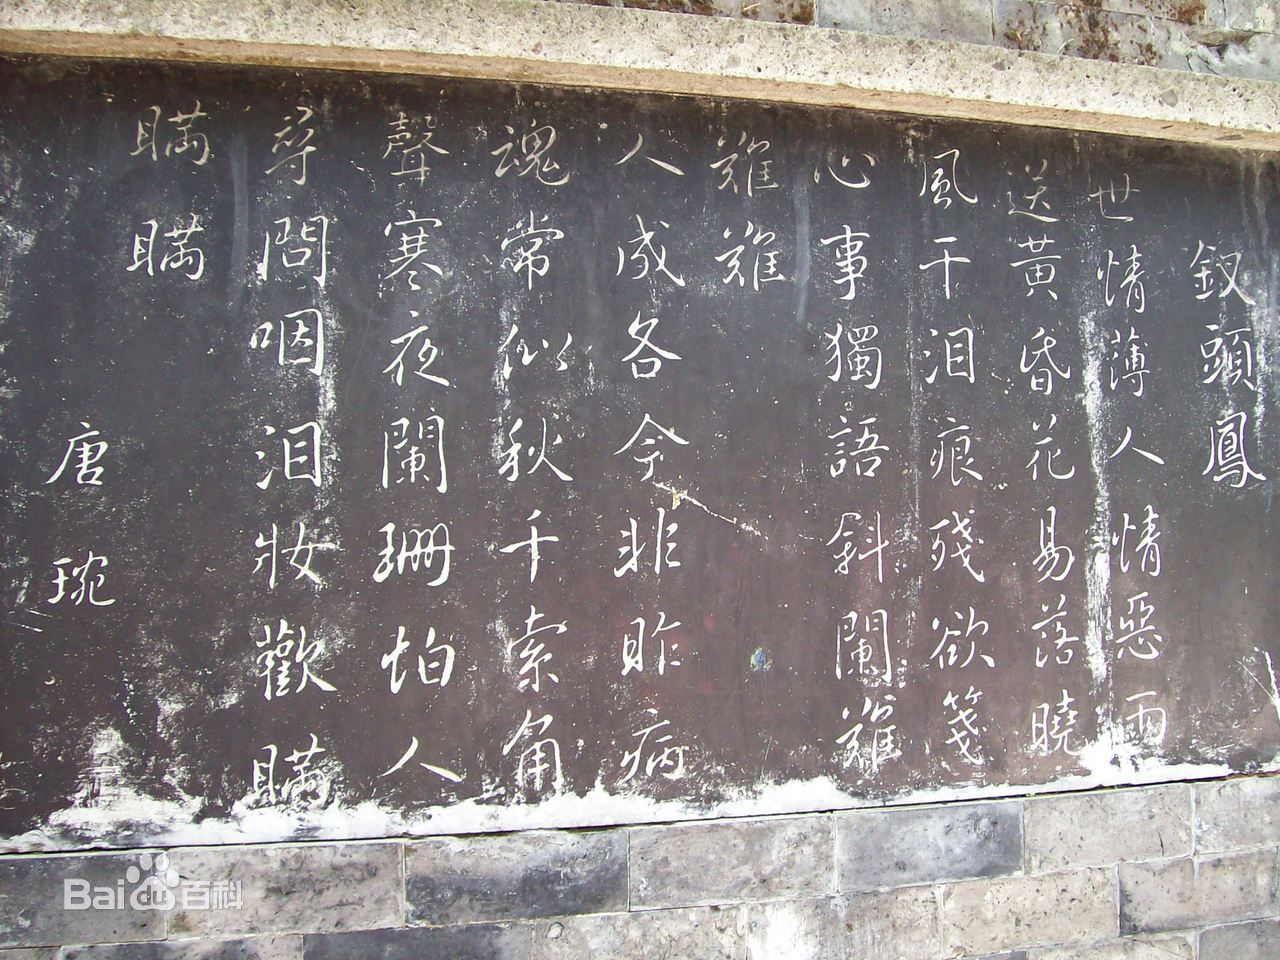 釵頭鳳
世情薄人情惡雨
送黃昏花易落曉
風干泪痕殘欲箋
心事獨語斜闌難
難難
人成各今非昨病
魂常似秋千索角
聲寒夜闌珊怕人
尋問咽泪妝歡瞞
瞞瞞
唐琬
Bai百科